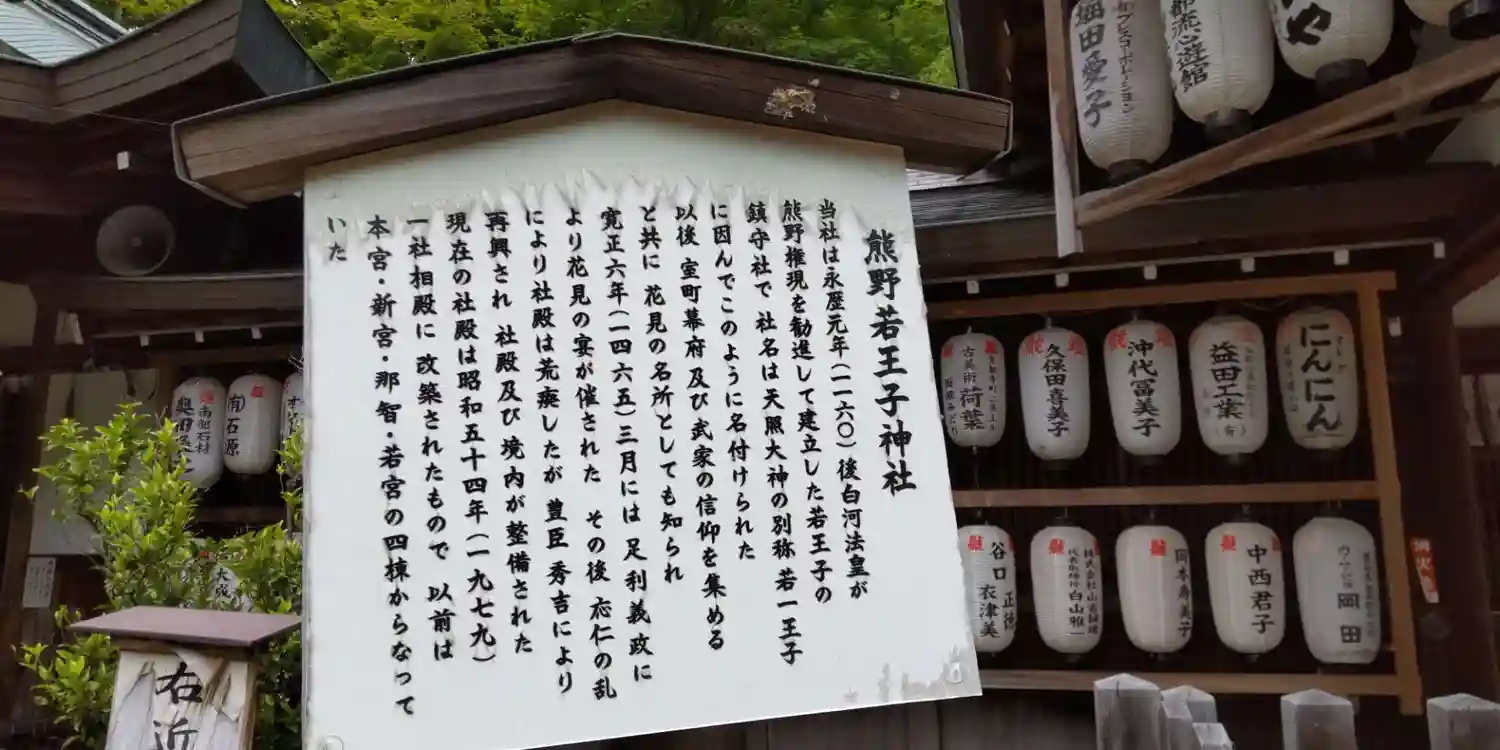 熊野若王子神社
当社は永歴元年(一一六〇)後白河法皇が
熊野権現を勧進して建立した若王子の
鎮守社で 社名は天照大神の別称 若一王子
に因んでこのように名付けられた
以後 室町幕府及び武家の信仰を集める
と共に 花見の名所としても知られ
寛正六年(一四六五)三月には 足利義政に
より花見の宴が催された その後 応仁の乱
により社殿は荒廃したが 豊臣秀吉により
再興され 社殿及び境内が整備された
現在の社殿は昭和五十四年(一九七九)
一社相殿に 改築されたもので 以前は
本宮・新宮・那智・若宮の四棟からなって
いた
堀田愛子
にんにん
益田工業(有)
沖代冨美子
久保田喜美子
古美術 荷葉
岡田
中西君子
岡本寿美子
白山雅一
谷口衣津美
正徳
南部石材
(有)石原
右近